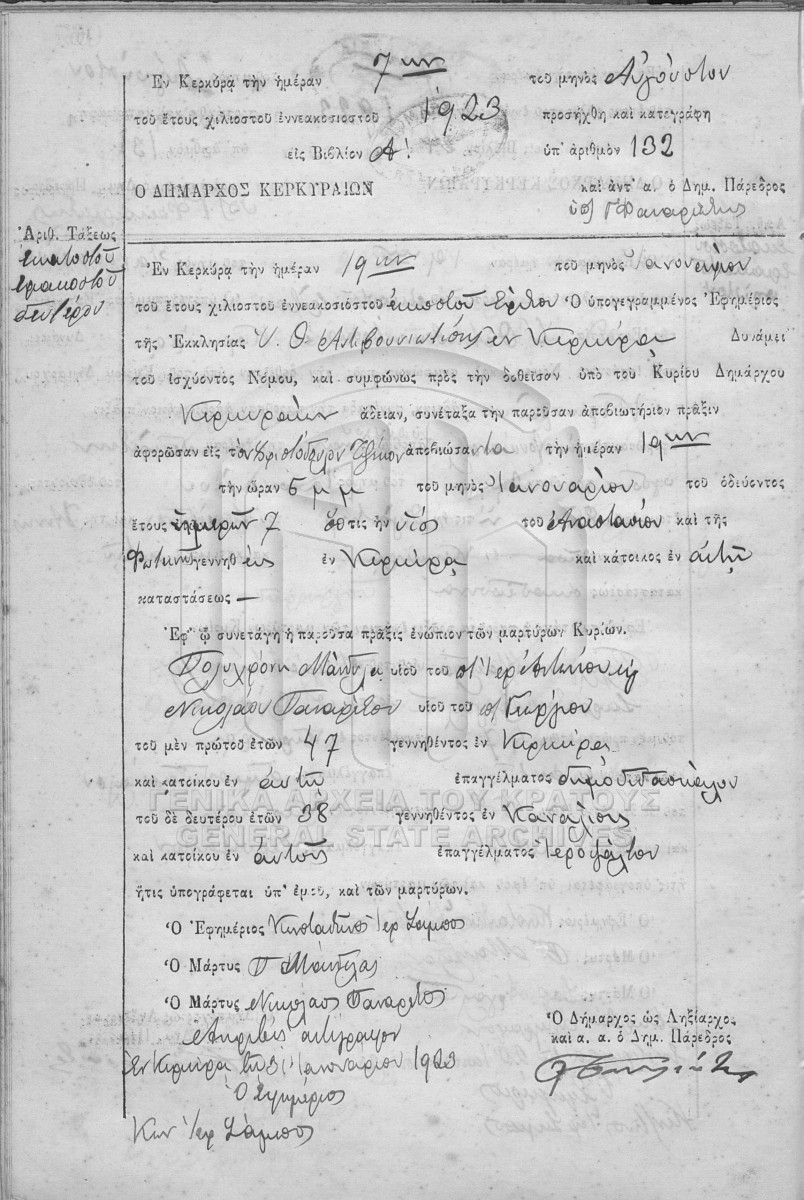 Ἐν Κερκύρᾳ τὴν ἡμέραν 7ην τοῦ μηνὸς Αὐγούστου
τοῦ ἔτους χιλιοστοῦ ἐννεακοσιοστοῦ 1923 προσήχθη καὶ κατεγράφη
εἰς Βιβλίον Α! ὑπ' ἀριθμὸν 132
Ο ΔΗΜΑΡΧΟΣ ΚΕΡΚΥΡΑΙΩΝ καὶ ἀντ' α. ὁ Δημ. Πάρεδρος
Ἀριθ. Τάξεως
ἑκατοστοῦ
Ἐν Κερκύρᾳ τὴν ἡμέραν 19ην τοῦ μηνὸς
τοῦ ἔτους χιλιοστοῦ ἐννεακοσιοστοῦ εἰκοστοῦ τρίτου Ὁ ὑπογεγραμμένος Ἐφημέριος
τῆς Ἐκκλησίας Υ. Θ. Ἀντιβουνιωτίσης ἐν Κερκύρᾳ Δυνάμει
τοῦ ἰσχύοντος Νόμου, καὶ συμφώνως πρὸς τὴν δοθεῖσαν ὑπὸ τοῦ Κυρίου Δημάρχου
Κερκυραίων ἄδειαν, συνέταξα τὴν παροῦσαν ἀποβιωτήριον πρᾶξιν
ἀφορῶσαν εἰς τὸν Χριστόδουλον ἀποβιώσαντα τὴν ἡμέραν 19ην
τὴν ὥραν 5 μμ τοῦ μηνὸς Ἰανουαρίου τοῦ ὁδεύοντος
ἔτους ἡμερῶν 7 ὅστις ἦν υἱός τοῦ Ἀναστασίου καὶ τῆς
Φωτεινῆς γεννηθεὶς ἐν Κερκύρᾳ καὶ κάτοικος ἐν αὐτῇ
καταστάσεως —
Ἐφ' ᾧ συνετάγη ἡ παροῦσα πρᾶξις ἐνώπιον τῶν μαρτύρων Κυρίων.
Πολυχρόνη Μάνδυλα υἱοῦ τοῦ
Νικολάου Παναρίτου υἱοῦ τοῦ π/ Γεωργίου
τοῦ μὲν πρώτου ἐτῶν 47 γεννηθέντος ἐν Κερκύρᾳ
καὶ κατοίκου ἐν αὐτῇ ἐπαγγέλματος δημοδιδασκάλου
τοῦ δὲ δευτέρου ἐτῶν 38 γεννηθέντος ἐν Καναλίοις
καὶ κατοίκου ἐν αὐτοῖς ἐπαγγέλματος Ἱεροψάλτου
ἥτις ὑπογράφεται ὑπ' ἐμοῦ, καὶ τῶν μαρτύρων.
Ὁ Ἐφημέριος Κωνσταντῖνος Ἱερ
Ὁ Μάρτυς Π Μάνδυλας
Ὁ Μάρτυς Νικόλαος Παναρίτος
Ἀκριβὲς ἀντίγραφον
Ἐν Κερκύρᾳ τῇ 31 Ἰανουαρίου 1923
Ὁ Ἐφημέριος
Κων Ἱερ
Ὁ Δήμαρχος ὡς Ληξίαρχος
καὶ α. α. ὁ Δημ. Πάρεδρος
ΓΕΝΙΚΑ ΑΡΧΕΙΑ ΤΟΥ ΚΡΑΤΟΥΣ
GENERAL STATE ARCHIVES